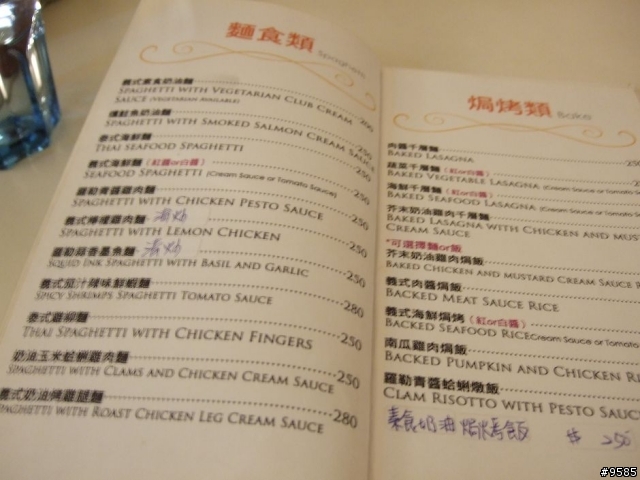 麵食類 Spaghetti
義式素食奶油麵
SPAGHETTI WITH VEGETARIAN CLUB CREAM 200
SAUCE (VEGETARIAN AVAILABLE)
燻鮭魚奶油麵
SPAGHETTI WITH SMOKED SALMON CREAM SAUCE 250
泰式海鮮麵
THAI SEAFOOD SPAGHETTI 250
義式海鮮麵(紅醬or白醬)
SEAFOOD SPAGHETTI (Cream Sauce or Tomato Sauce) 250
羅勒青醬雞肉麵
SPAGHETTI WITH CHICKEN PESTO SAUCE 250
義式檸檬雞肉麵 清炒
SPAGHETTI WITH LEMON CHICKEN 250
羅勒蒜香墨魚麵 清炒
SQUID INK SPAGHETTI WITH BASIL AND GARLIC 250
義式茄汁辣味鮮蝦麵
SPICY SHRIMPS SPAGHETTI TOMATO SAUCE 280
泰式雞柳麵
THAI SPAGHETTI WITH CHICKEN FINGERS 250
奶油玉米蛤蜊雞肉麵
SPAGHETTI WITH CLAMS AND CHICKEN CREAM SAUCE 250
義式奶油烤雞腿麵
SPAGHETTI WITH ROAST CHICKEN LEG CREAM SAUCE 280
焗烤類
肉醬千層麵
BAKED LASAGNA 250
蔬菜千層麵(紅or白醬)
BAKED VEGETABLE LASAGNA (Cream Sauce or Tomato
海鮮千層麵(紅or白醬)
BAKED SEAFOOD LASAGNA (Cream Sauce or Tomato
芥末奶油雞肉千層麵
BAKED LASAGNA WITH CHICKEN AND MUST
CREAM SAUCE
*可選擇麵or飯
芥末奶油雞肉焗飯
BAKED CHICKEN AND MUSTARD CREAM SAUCE R
義式肉醬焗飯
BACKED MEAT SAUCE RICE
義式海鮮焗烤(紅or白醬)
BACKED SEAFOOD RICE(Cream Sauce or Tomato
南瓜雞肉焗飯
BACKED PUMPKIN AND CHICKEN RI
羅勒青醬蛤蜊燉飯
CLAM RISOTTO WITH PESTO SAUC
素食奶油焗烤飯 $ 250
#9585